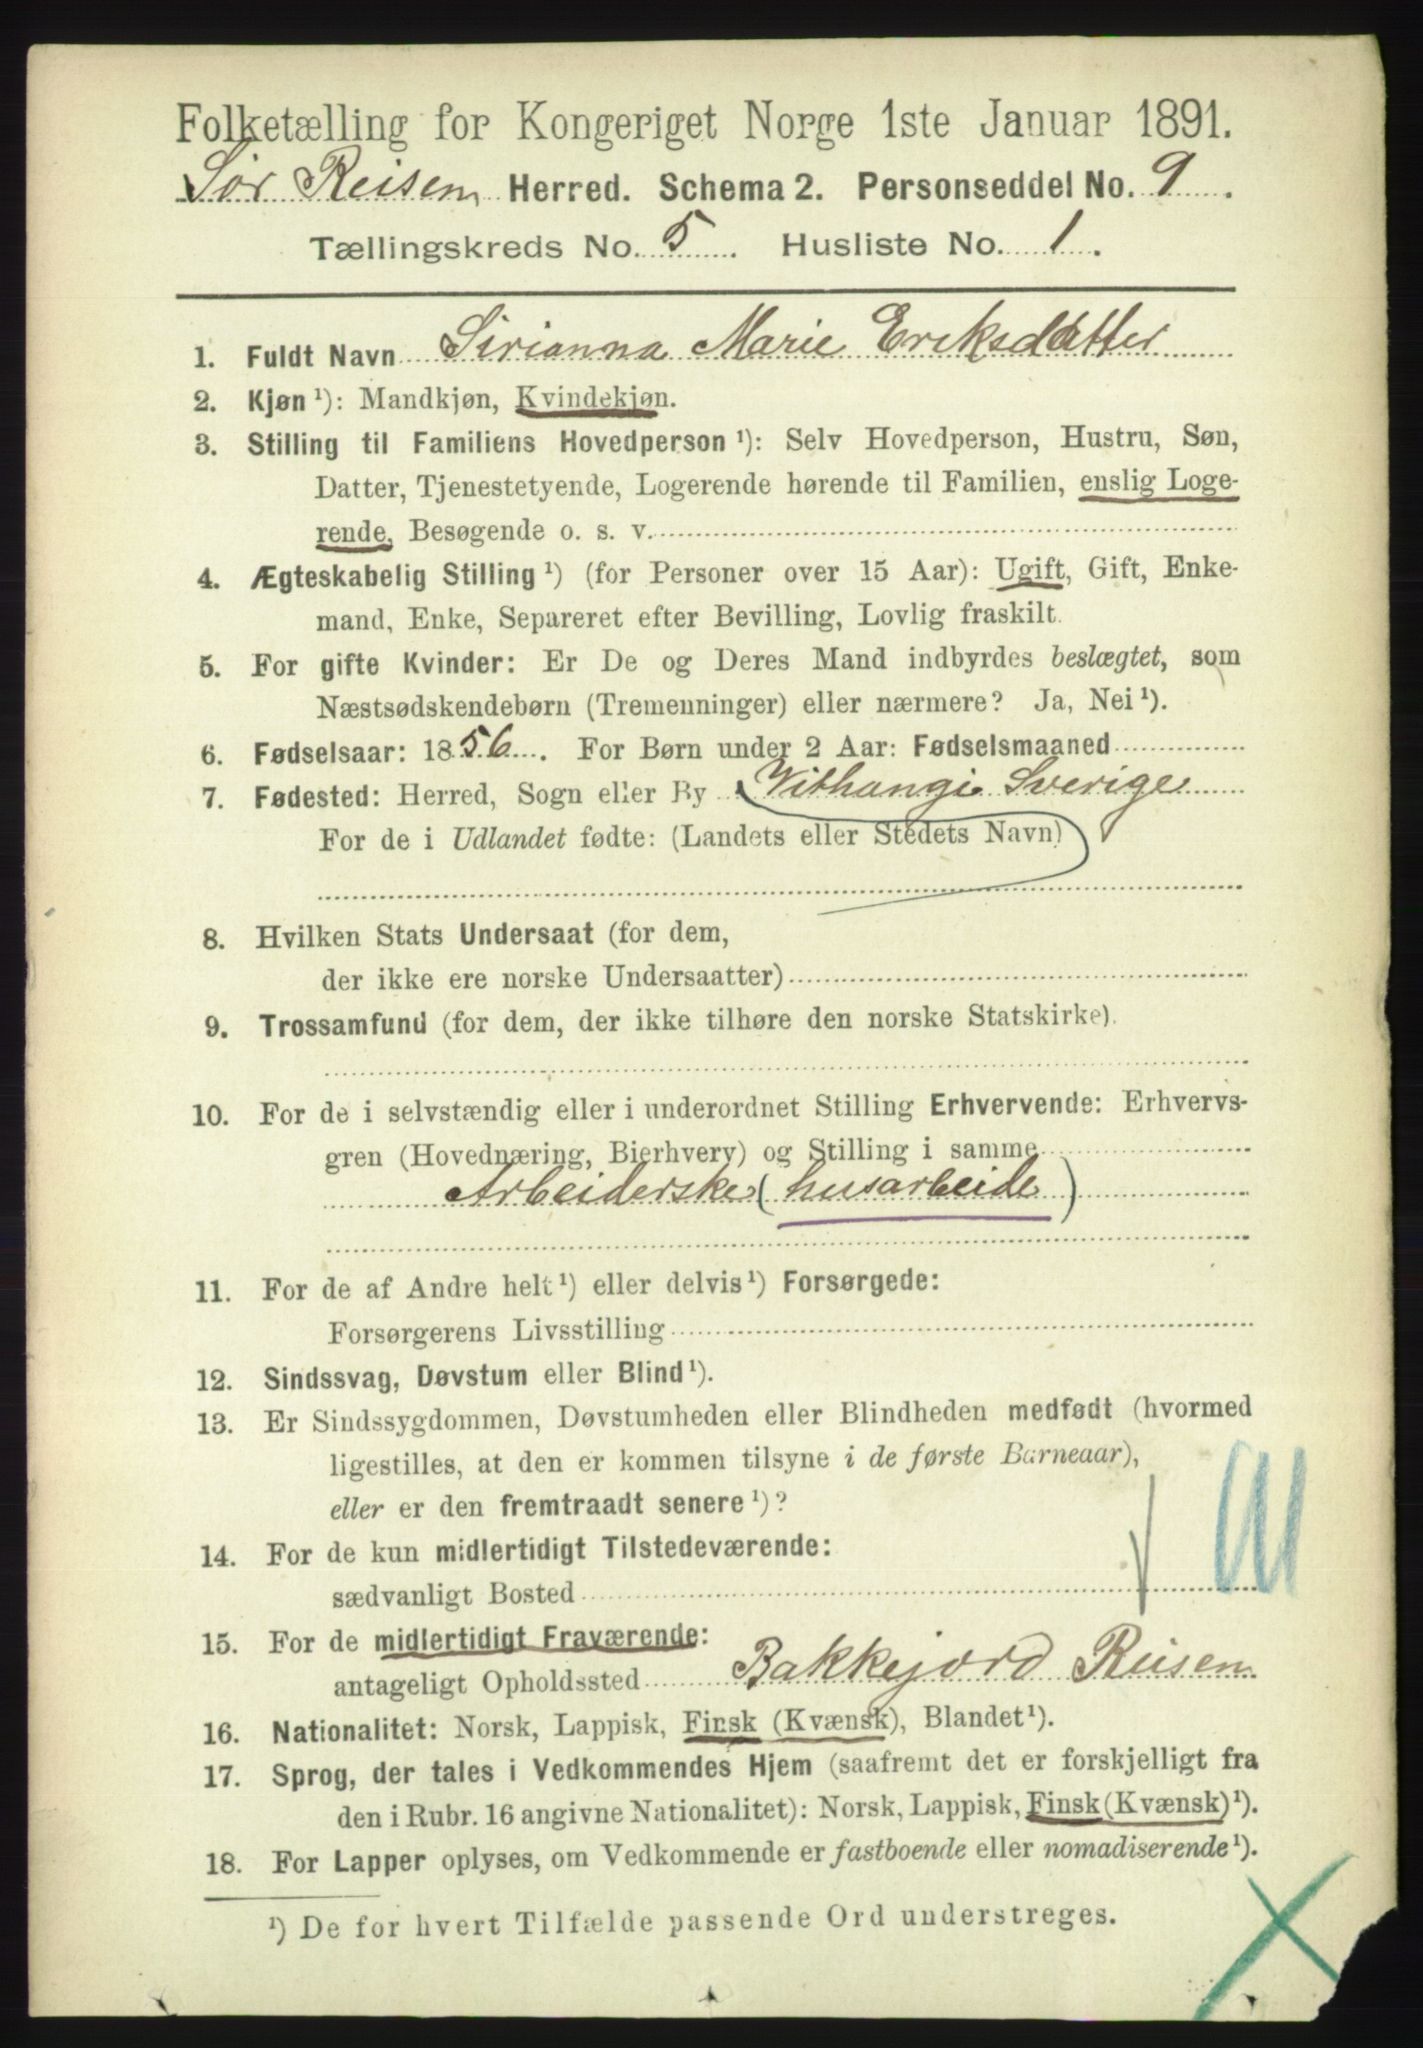 Folketælling for Kongeriget Norge 1ste Januar 1891.
Sør Reisen Herred. Schema 2. Personseddel No. 9.
Tællingskreds No. 5. Husliste No. 1.
1. Fuldt Navn Sirianna Marie Eriksdatter
2. Kjøn ¹): Mandkjøn, Kvindekjøn.
3. Stilling til Familiens Hovedperson ¹): Selv Hovedperson, Hustru, Søn,
Datter, Tjenestetyende, Logerende hørende til Familien, enslig Loge-
rende, Besøgende o. s. v.
4. Ægteskabelig Stilling ¹) (for Personer over 15 Aar): Ugift, Gift, Enke-
mand, Enke, Separeret efter Bevilling, Lovlig fraskilt.
5. For gifte Kvinder: Er De og Deres Mand indbyrdes beslægtet, som
Næstsødskendebørn (Tremenninger) eller nærmere? Ja, Nei ¹).
6. Fødselsaar: 1856. For Børn under 2 Aar: Fødselsmaaned
7. Fødested: Herred, Sogn eller By Vithangi Sverige
For de i Udlandet fødte: (Landets eller Stedets Navn)
8. Hvilken Stats Undersaat (for dem,
der ikke ere norske Undersaatter)
9. Trossamfund (for dem, der ikke tilhøre den norske Statskirke).
10. For de i selvstændig eller i underordnet Stilling Erhvervende: Erhvervs-
gren (Hovednæring, Bierhverv) og Stilling i samme
Arbeiderske (husarbeide)
11. For de af Andre helt ¹) eller delvis ¹) Forsørgede:
Forsørgerens Livsstilling
12. Sindssvag, Døvstum eller Blind ¹).
13. Er Sindssygdommen, Døvstumheden eller Blindheden medfødt (hvormed
ligestilles, at den er kommen tilsyne i de første Barneaar),
eller er den fremtraadt senere ¹)?
14. For de kun midlertidigt Tilstedeværende:
sædvanligt Bosted
15. For de midlertidigt Fraværende:
antageligt Opholdssted Bakkejord Reisen
16. Nationalitet: Norsk, Lappisk, Finsk (Kvænsk), Blandet ¹).
17. Sprog, der tales i Vedkommendes Hjem (saafremt det er forskjelligt fra
den i Rubr. 16 angivne Nationalitet): Norsk, Lappisk, Finsk (Kvænsk) ¹).
18. For Lapper oplyses, om Vedkommende er fastboende eller nomadiserende ¹).
¹) De for hvert Tilfælde passende Ord understreges.